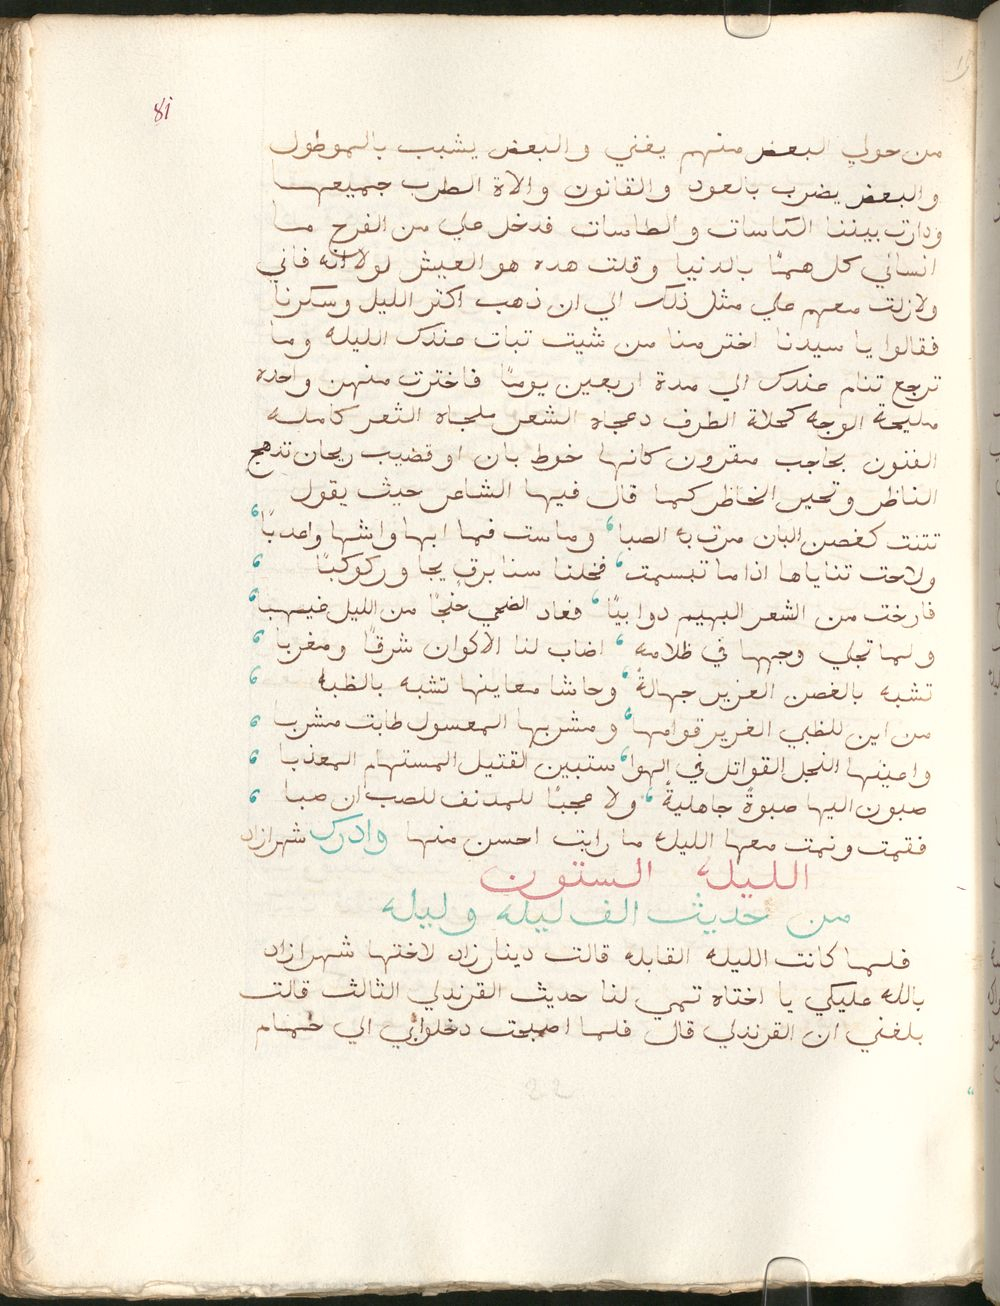 81
من حولي البعض منهم يغني والبعض يشبب بالموطول
والبعض يضرب بالعود والقانون والاة الطرب جميعها
ودارت بيننا الكاسات والطاسات فدخل علي من الفرح ما
انساني كل همًا بالدنيا وقلت هده هو العيش لولا انه فاني
ولازلت معهم علي مثل ذلك الي ان ذهب اكتر الليل وسكرنا
فقالوا يا سيدنا اختر منا من شيت تبات عندك الليله وما
ترجع تنام عندك الي مدة اربعين يومًا فاخترت منهن واحده
مليحة الوجه كحلاة الطرف دعجاه الشعر ملجاه الثغر كامله
الفنون بحاجب مقرون كانها خوط بان او قضيب ريحان تدهج
الناظر وتحير الخاطر كما قال فيها الشاعر حيث يقول
تتنت كغصن البان مرت به الصبا ، وماست فما ابها واشها واعدبًا ،
ولاحت تناياها اذا ما تبسمت ، فخلنا سنا برقٍ يجاور كوكبًا ،
فارخت من الشعر البهيم دوابيًا ، فعاد الضحي جنحًا من الليل غيهبا ،
ولما تجلي وجهها في ظلامه ، اضاب لنا الاكوان شرقًا ومغربا ،
تشبه بالغصن العزير جهالةً ، وحاشا معاينها تشبه بالظبه ،
من اين للظبي الغرير قوامها ، ومشربها المعسول طابت مشربا ،
واعينها النجل القواتل في الهوا ، ستبين القتيل المستهام المعذبا ،
صبون اليها صبوةً جاهليةً ، ولا عجبًا للمدنف للصب ان صبا ،
فقمت ونمت معها الليله ما رايت احسن منها وادرك شهرازاد
الليله الستون
من حديث الف ليله وليله
فلما كانت الليله القابله قالت دينارزاد لاختها شهرازاد
بالله عليكي يا اختاه تمي لنا حديث القرندلي الثالث قالت
بلغني ان القرندلي قال فلما اصبحت دخلوابي الي حمام